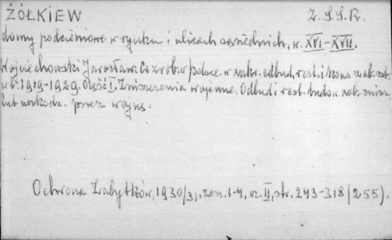 ŻÓŁKIEW Z.S.S.R.
domy podcieniowe w rynku i ulicach sąsiednich, w. XVI-XVII.
Wojciechowski Jarosław. Co zrobiono w Polsce w zakr. odbud. rest. i kons. zab. szt.
w l. 1919-1929. Część I. Zniszczenia wojenne. Odbud. i rest. budow. zab. znisz.
lub uszkodz. przez wojnę.
Ochrona Zabytków, 1930/31, zesz. 1-4, cz. II, str. 243-318 (255).